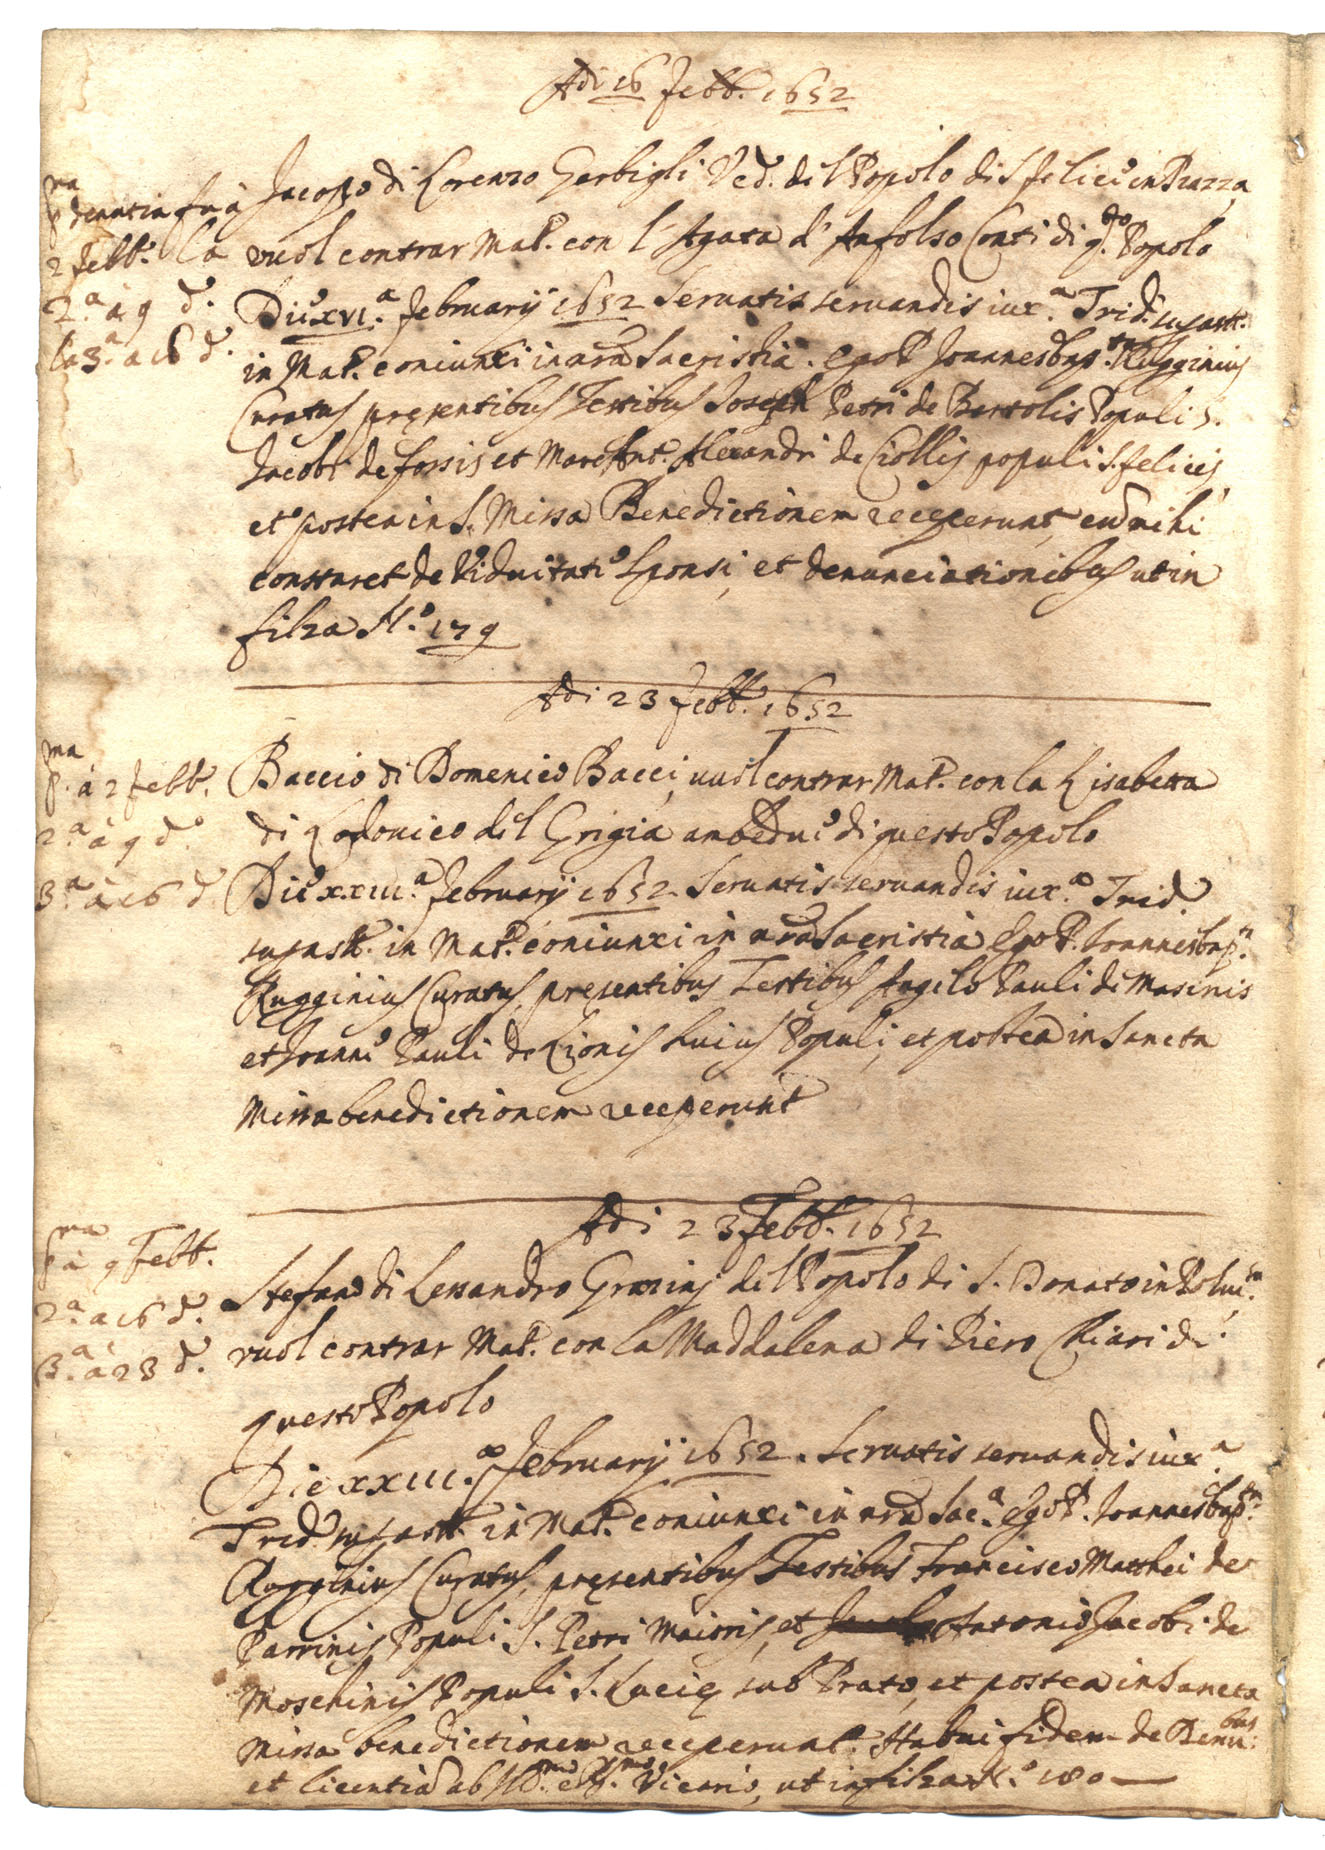 Adi 16 febb. 1652
p.ma denuntia fu à
2 febb.o la
2.a à 9 d.o
la 3.a a 16 d.o
Jacopo di Lorenzo Gerbigli Ved.o del Popolo di S felice in Piazza
vuol contrar Mat.o con l'Agata d' Anfolso Conti di q.sto Popolo
Die XVI.a february 1652 Servatis servandis iux.a Trid.
in Mat.o coniunxi in nra Sacristia. Ego P. Joannesbap.ta Rugginius
Curatus presentibus Testibus Joseph Petri de Bartolis Populi S.
Jacobi de fossis et Marc'Ant.o Alexandri de Ciollis populi S. felicis,
et postea in S. Missa Benedictionem receperunt, cu mihi
constaret de Viduitate Sponsi, et denunciationibus ut in
filza N.o 179
Adi 23 febb. 1652
p.ma à 2 febb.
2.a à 9 d.o
3.a à 16 d.o
Baccio di Domenico Bacci, vuol contrar Mat.o con la Lisabetta
di Lodovico del Grigia ambedue di questo Popolo
Die XXIII.a february 1652 Servatis servandis iux.a Trid.
in Mat.o coniunxi in nra Sacristia Ego P. Joannesbap.ta
Rugginius Curatus, presentibus Testibus Angelo Pauli de Masinis
et Joanne Pauli de Lionis huius Populi, et postea in Sancta
Missa benedictionem receperunt
Adi 23 Febb. 1652
p.ma à 9 Febb.
2.a a 16 d.o
3.a à 23 d.o
Stefano di Lessandro Grazini del Popolo di S. Donato in
vuol contrar Mat.o con la Maddalena di Piero Chiari di
questo Popolo
Die XXIII.a february 1652. Servatis servandis iux.a
Trid. in Mat.o coniunxi in nra Sac.a Ego P. Joannesbap.ta
Rugginius Curatus, presentibus Testibus Francisco Matthei de
Parrinis Populi S. Petri Maioris, et Antonio Jacobi de
Moschinis Populi S. Lucie sub Prato, et postea in Sancta
Missa benedictionem receperunt. Habui fidem de Denu.bus
et licentia ab Ill.mo e R.mo Vicario, ut in filza N.o 180